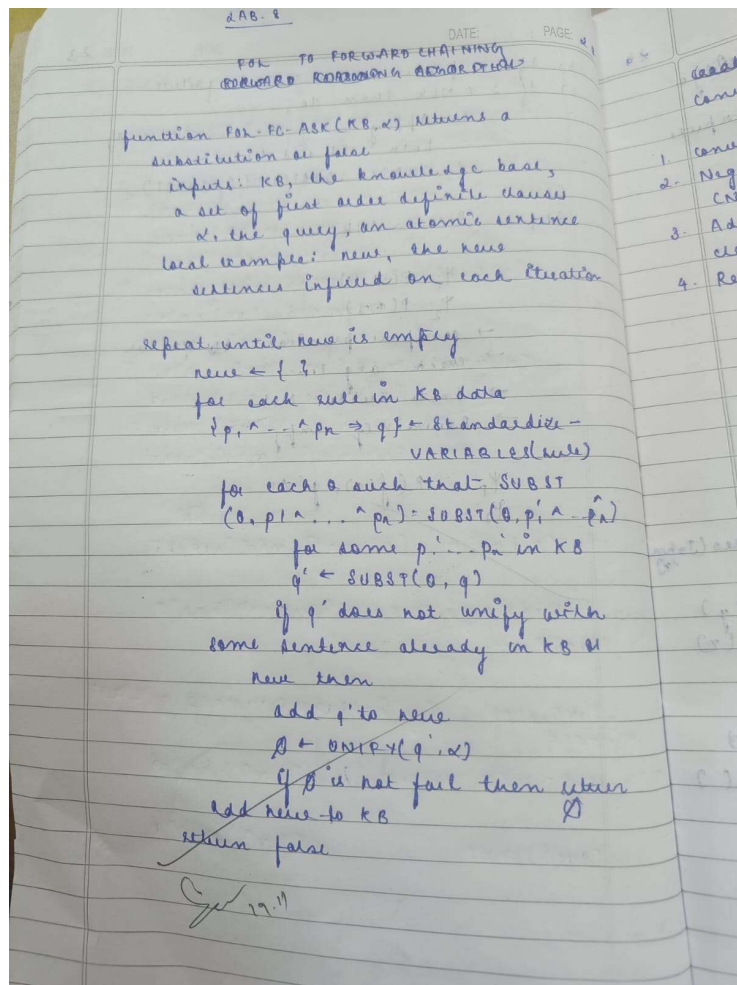 LAB. 8
DATE: PAGE
FOL TO FORWARD CHAINING
FORWARD REASONING ALGORITHM
function FOL-FC-ASK(KB, α) returns a
substitution or false
inputs: KB, the knowledge base,
a set of first order definite clauses
α, the query, an atomic sentence
local example: new, the new
sentences inferred on each iteration
repeat until new is empty
new ← { }
for each rule in KB data
{p, ^ ... ^ pn ⇒ q} ← Standardize-
VARIABLES(rule)
for each θ such that SUBST
(θ, p1 ^ ... ^ pn') = SUBST(θ, p'1 ^ ... p̂n)
for some p'... pn' in KB
q' ← SUBST(θ, q)
if q' does not unify with
some sentence already in KB or
new then
add q' to new
Ø ← UNIFY(q', α)
if Ø is not fail then return
Ø
add new to KB
return false
19.11
1. Conv
2. Neg
CN
3. Ad
cl
4. Re